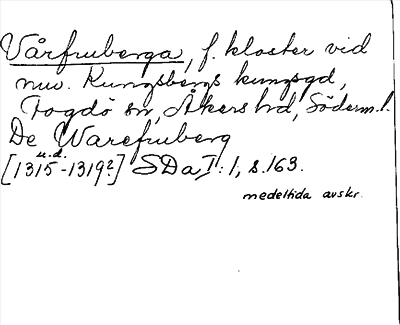 Vårfruberga, f. kloster vid
nuv. Kungsbergs kungsgd,
Fogdö sn, Åkers hd, Söderm. l.
De Warefruberg
u.d.
[1315-1319?] SDa I:1, s. 163.
medeltida avskr.